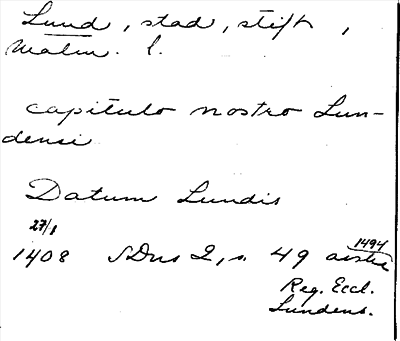 Lund, stad, stift,
Malm. l.
capitulo nostro Lun-
densi
Datum Lundis
27/1
1408 SDns 2, s. 49 avskr
1494
Reg. Eccl.
Lundens.